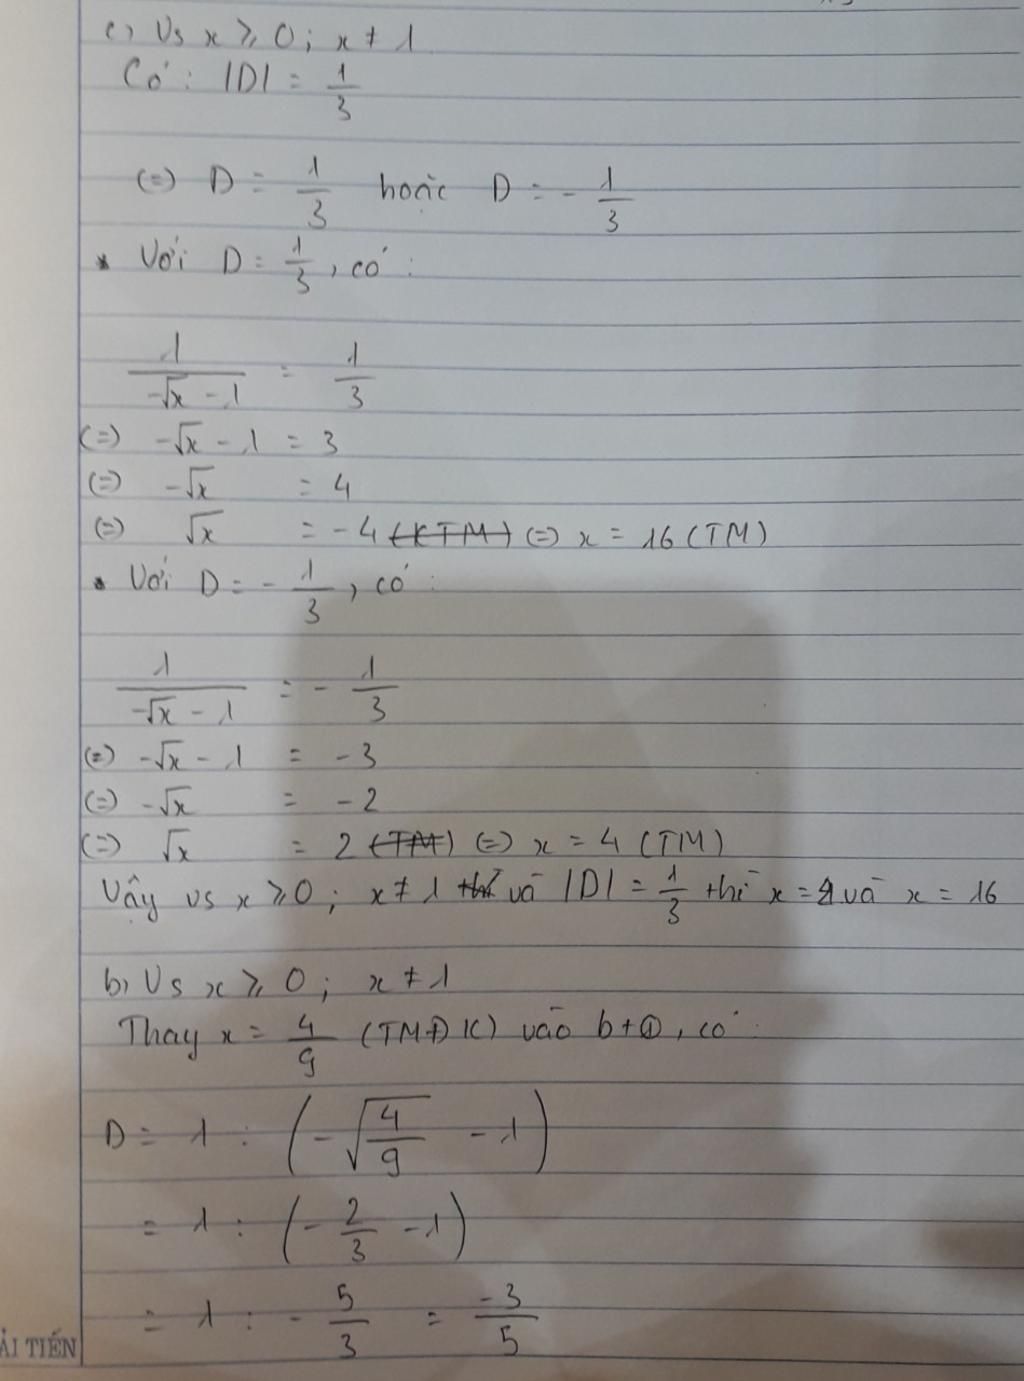 c) Vs x ≥ 0; x ≠ 1
Có: |D| = 1/3
(=) D = 1/3 hoặc D = - 1/3
* Với D = 1/3, có:
1/(-√x - 1) = 1/3
(=) -√x - 1 = 3
(=) -√x = 4
(=) √x = -4 (KTM) (=) x = 16 (TM)
• Với D = - 1/3, có:
1/(-√x - 1) = - 1/3
(=) -√x - 1 = -3
(=) -√x = -2
(=) √x = 2 (TM) (=) x = 4 (TM)
Vậy vs x ≥ 0; x ≠ 1 và |D| = 1/3 thì x = 4 và x = 16
b) Vs x ≥ 0; x ≠ 1
Thay x = 4/9 (TMĐK) vào bt①, có:
D = 1 : (-√(4/9) - 1)
= 1 : (- 2/3 - 1)
= 1 : - 5/3 = -3/5
ẢI TIẾN